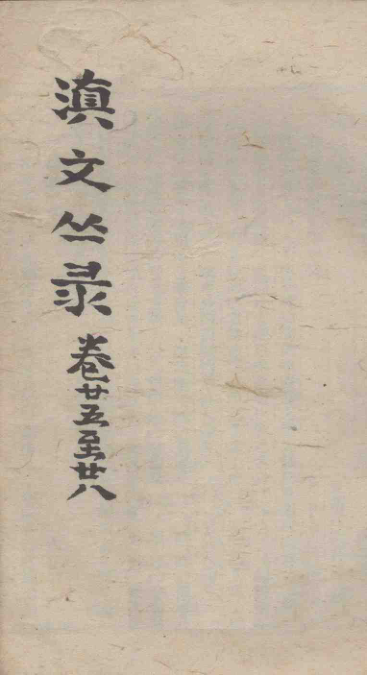 滇文丛录卷廿五至廿八